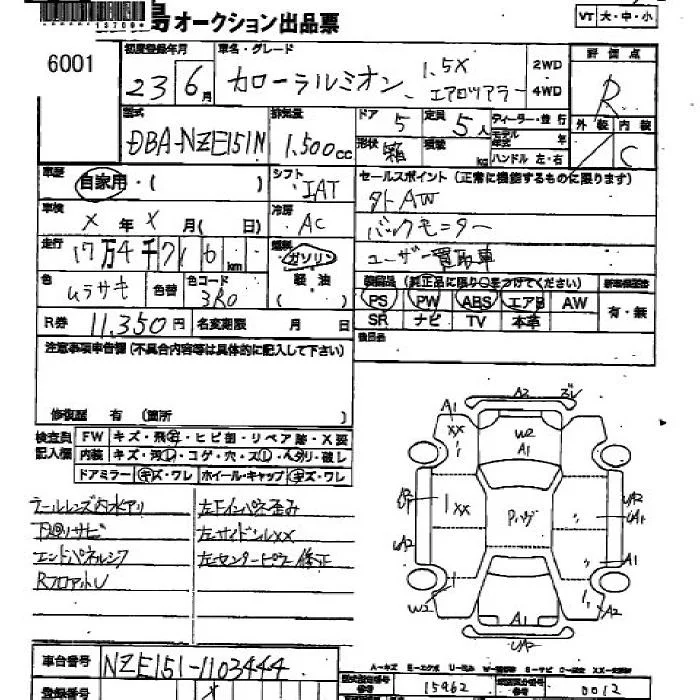 島オークション出品票
VT 大・中・小
6001
初度登録年月 車名・グレード 評価点
23 6月 カローラルミオン 1.5X エアロツアラー 2WD 4WD R
型式 排気量 ドア 5 定員 5人 ディーラー・並行 外装 内装
DBA-NZE151N 1.500cc 形状 箱 積載 kg モデル年式 年 C
ハンドル 左・右
車歴 自家用・( ) シフト IAT セールスポイント(正常に機能するものに限ります)
車検 X年 X月( 日) 冷房 AC 外AW
バックモニター
走行 17万4千716km 燃料 ガソリン 軽油 ユーザー買取車
色 ムラサキ 色替 色コード 3R0 装備品(純正品に限り○をつけてください)
PS PW ABS エアB AW 有・無
R券 11,350円 名変期限 月 日 SR ナビ TV 本革
注意事項申告欄(不具合内容等は具体的に記入して下さい)
修復歴 有 (箇所 )
検査員記入欄 FW キズ・飛石・ヒビ割・リペア跡・X要
内装 キズ・汚レ・コゲ・穴・スレ・ヘタリ・破レ
ドアミラー キズ・ワレ ホイール・キャップ キズ・ワレ
テールレンズ内水アリ 左Fインパネ歪み
下回リサビ 左サイドシルXX
エンドパネルシワ 左センターピラー修正
RフロアトU
A2
A1 XX W2 A1
XX Pハゲ UA2 UA1
UA2 A1
W2 A1 A2
UA2
A-キズ E-エクボ U-凹み
車台番号 NZE151-1103444
型式指定番号 15962 類別区分番号 0012
登録番号